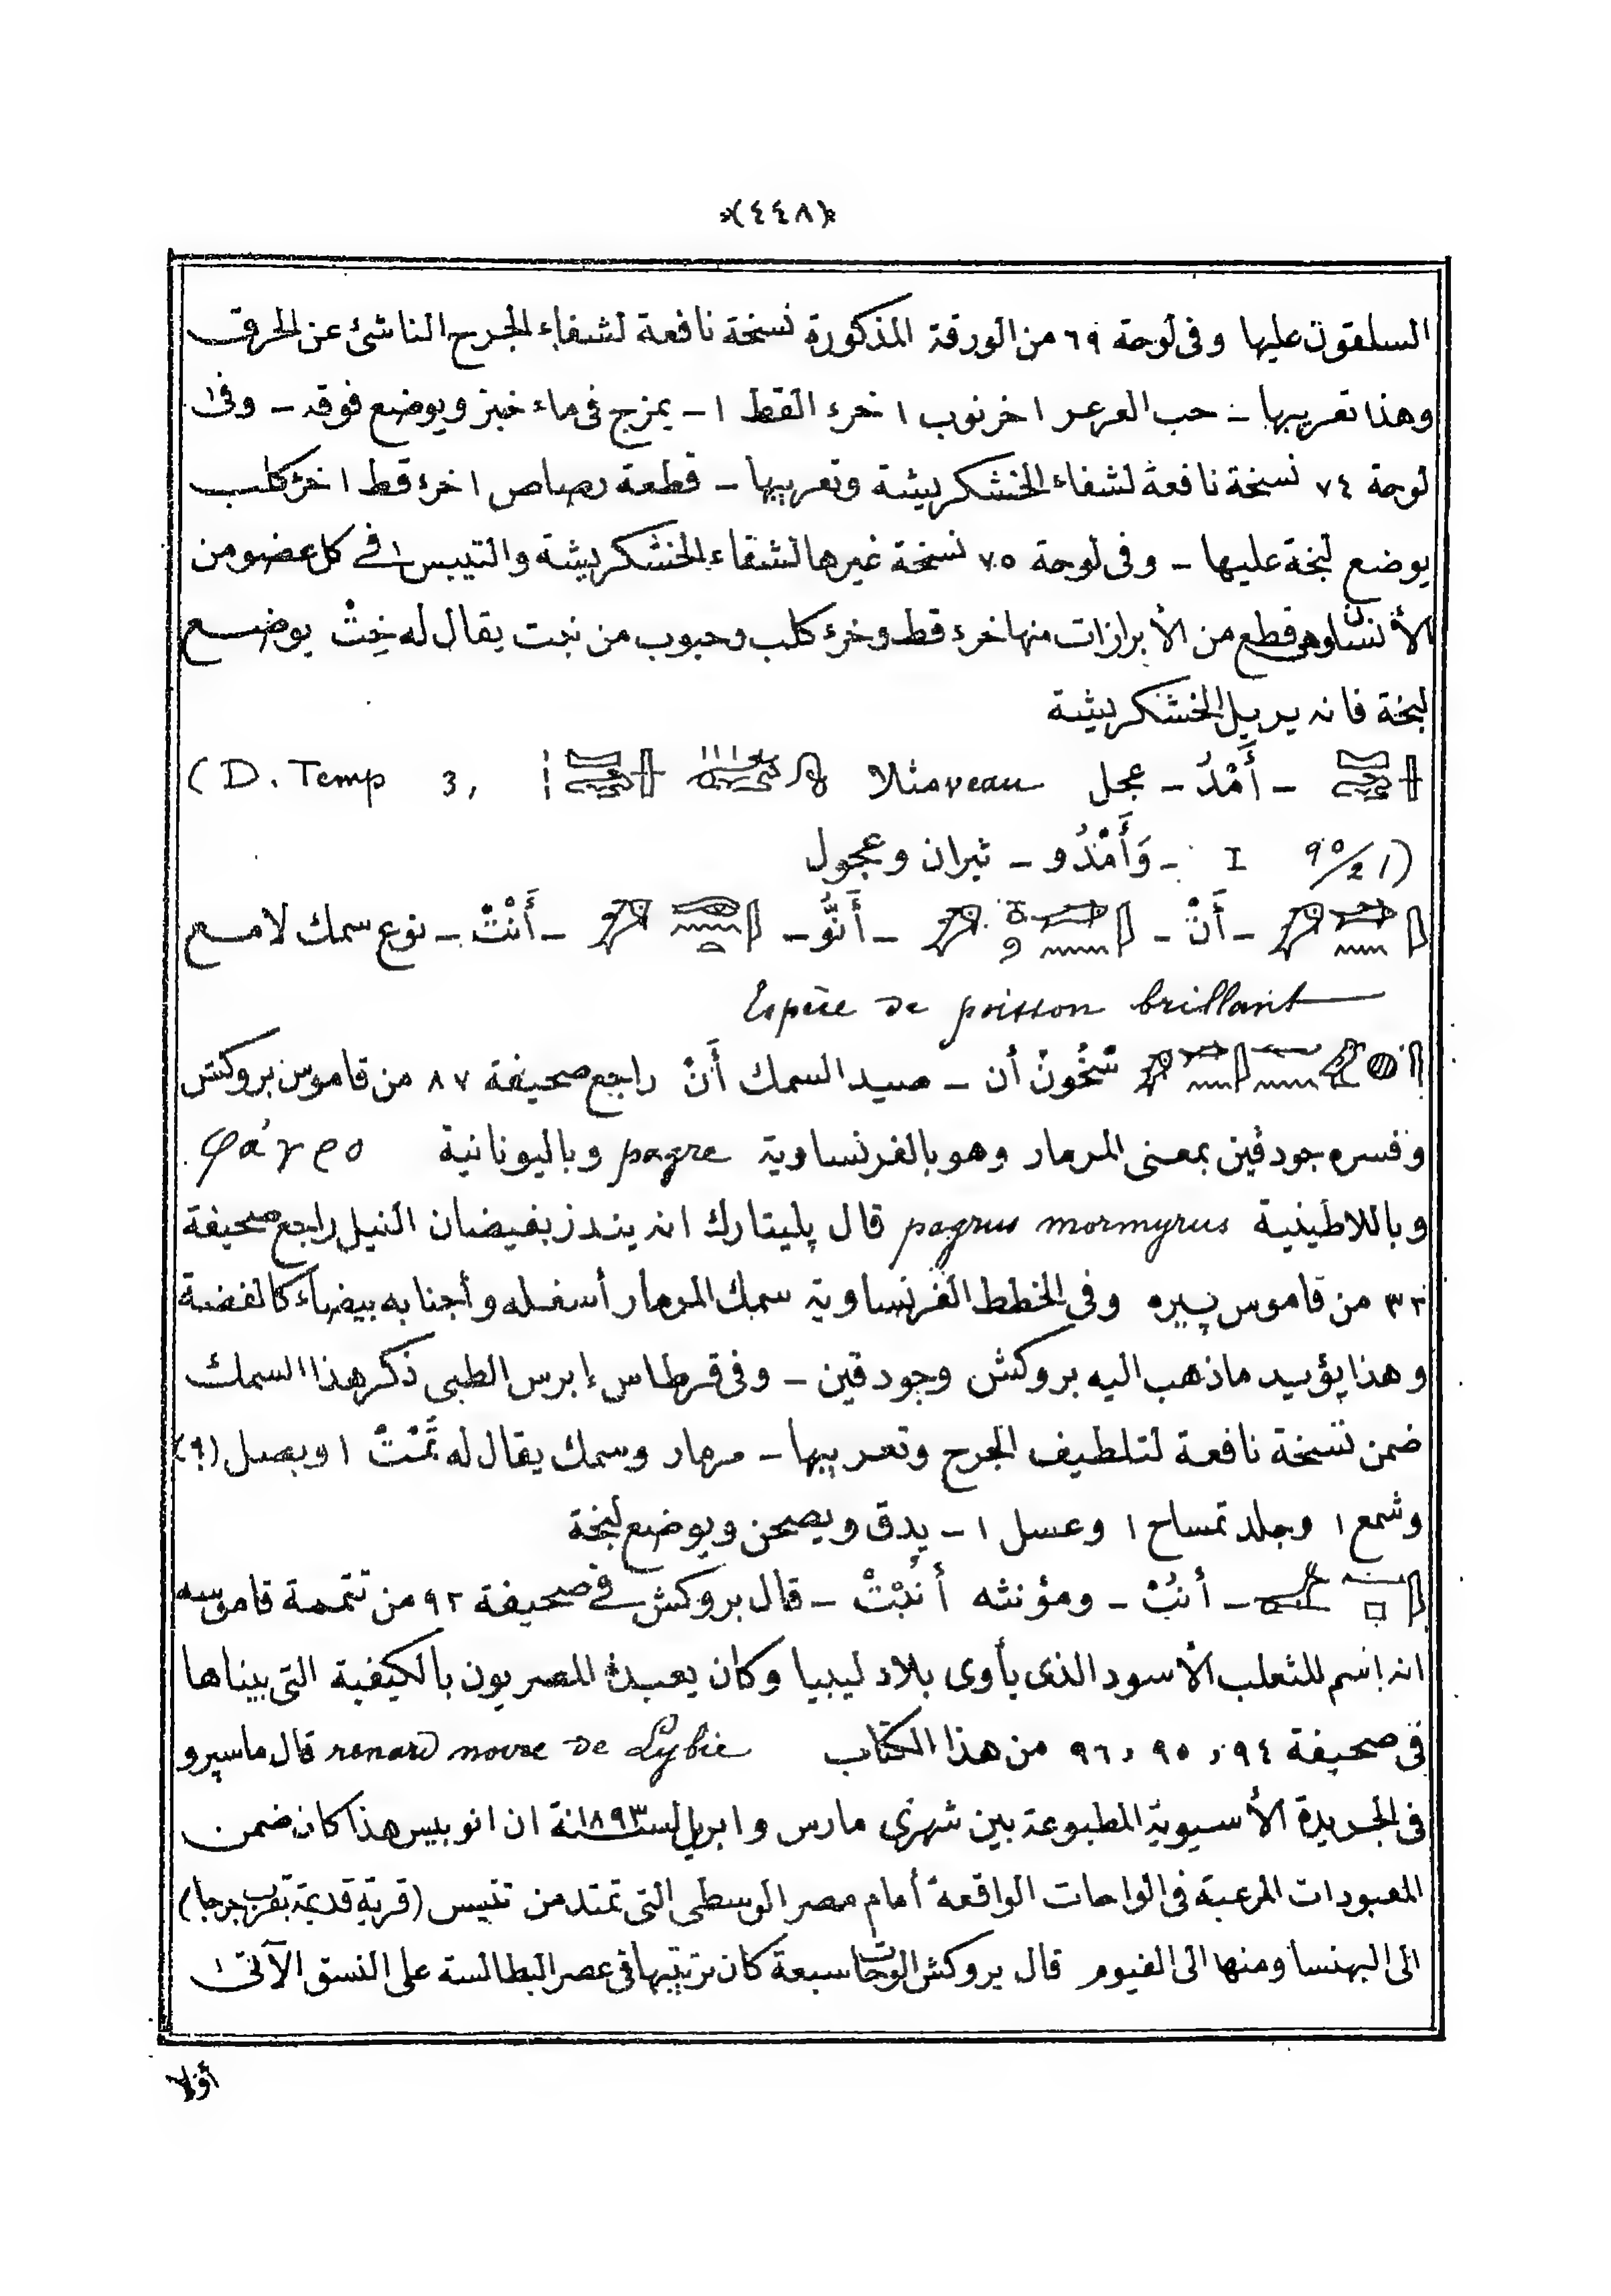 ﴿٤٤٨﴾
السلقون عليها وفى لوحة ٦٩ من الورقة المذكورة نسخة نافعة لشفاء الجرح الناشئ عن الحرق
وهذا تعريبها - حب العرعر ١ خرنوب ١ خرء القط ١ - يمزج فى ماء خبز ويوضع فوقه - وفى
لوحة ٧٤ نسخة نافعة لشفاء الخشكريشة وتعريبها - قطعة رصاص ١ خرء قط ١ خرء كلب
يوضع لبخة عليها - وفى لوحة ٧٥ نسخة غيرها لشفاء الخشكريشة والتيبس فى كل عضو من
الأنسان وهى قطع من الأبرازات منها خرء قط وخرء كلب وحبوب من نبت يقال له خِتْ يوضع
لبخة فانه يزيل الخشكريشة
- أَمْدُ - عجل veau مثلا (D. Temp 3,
I ٩٠/21) - وَأَمْنْدُو - ثيران وعجول
- أَنْ - - أَنُّو - - أَنْتْ - نوع سمك لامع
Espèce de poisson brillant
سْخُونْ أن - صيد السمك أَنْ راجع صحيفة ٨٧ من قاموس بروكش
وفسره جودقين بمعنى المرمار وهو بالفرنساوية pagre وباليونانية φάγρο
وباللاطينية pagrus mormyrus قال پليتارك انه ينذر بفيضان النيل راجع صحيفة
٣٣ من قاموس پييره وفى الخطط الفرنساوية سمك المرمار أسفله وأجنابه بيضاء كالفضة
وهذا يؤيد ماذهب اليه بروكش وجودقين - وفى قرطاس إبرس الطبى ذكر هذا السمك
ضمن نسخة نافعة لتلطيف الجرح وتعريبها - مرمار وسمك يقال له تَمْتْ ١ وبصل (؟)
وشمع ١ وجلد تمساح ١ وعسل ١ - يدق ويصحن ويوضع لبخة
- أنُبْ - ومؤنثه أنُبْتْ - قال بروكش فى صحيفة ٩٢ من تتممة قاموسه
انه إسم للثعلب الأسود الذى يأوى بلاد ليبيا وكان يعبده المصريون بالكيفية التى بيناها
فى صحيفة ٩٤، ٩٥، ٩٦ من هذا الكتاب renard noire de Lybie قال ماسپرو
فى الجريدة الأسيوية المطبوعة بين شهرى مارس وابريل سنة ١٨٩٣ ان انوبيس هذا كان ضمن
المعبودات المرعبة فى الواحات الواقعة أمام مصر الوسطى التى تمتد من تنيس (قرية قديمة بقرب جرجا)
الى البهنسا ومنها الى الفيوم قال بروكش الوحات سبعة كان ترتيبها فى عصر البطالسة على النسق الآتى
أولا